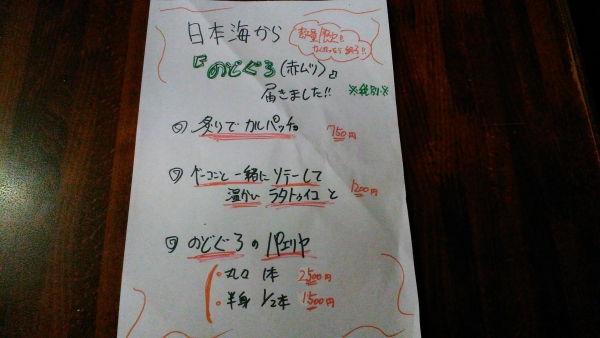 日本海から
数量限定!!
なくなったら終了!!
『のどぐろ(赤ムツ)』
届きました!! ※税別※
炙りで カルパッチョ 750円
ベーコンと一緒に ソテーして
温かい ラタトゥイユ と 1200円
のどぐろ の パエリヤ
・丸々 1本 2500円
・半身 1/2本 1500円